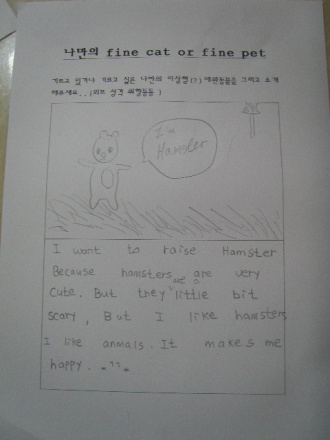 나만의 fine cat or fine pet
기르고 있거나 기르고 싶은 나만의 이상형(?) 애완동물을 그리고 소개
해주세요..(외모 성격 취향등등)
I'm
Hamster
I want to raise Hamster
Because hamsters are very
cute. But they are little bit
scary, But I like hamsters
I like anmals. It makes me
happy.